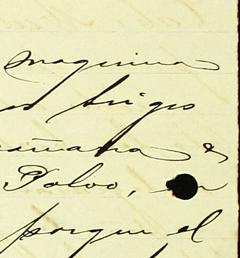 maquina
trigo
mañana &
Polvo, en
porque el